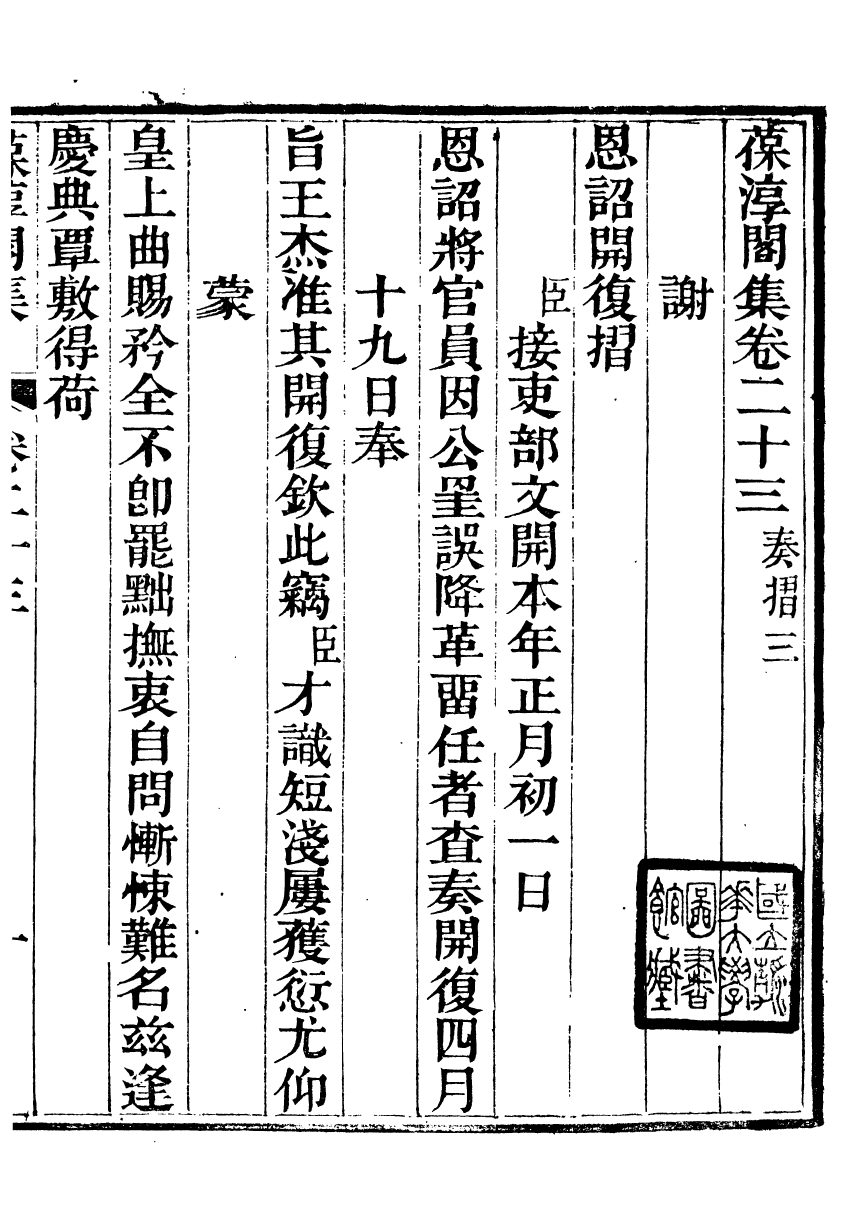 葆淳閣集卷二十三 奏摺三
謝
恩詔開復摺
臣接吏部文開本年正月初一日
恩詔將官員因公罣誤降革畱任者查奏開復四月
十九日奉
旨王杰准其開復欽此竊臣才識短淺屢獲愆尤仰
蒙
皇上曲賜矜全不卽罷黜撫衷自問慚悚難名茲逢
慶典覃敷得荷
葆淳閣集 卷二十三 一
國立清華大學圖書館藏